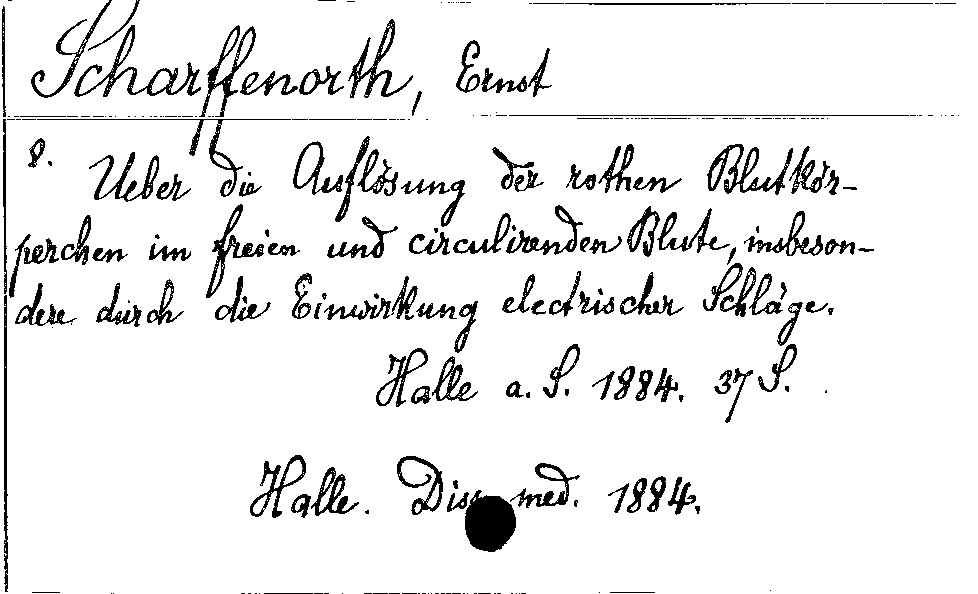 Scharffenorth, Ernst
8. Ueber die Auflösung der rothen Blutkör-
perchen im freien und circulirenden Blute, insbeson-
dere durch die Einwirkung electrischer Schläge.
Halle a. S. 1884. 37 S.
Halle. Diss. med. 1884.